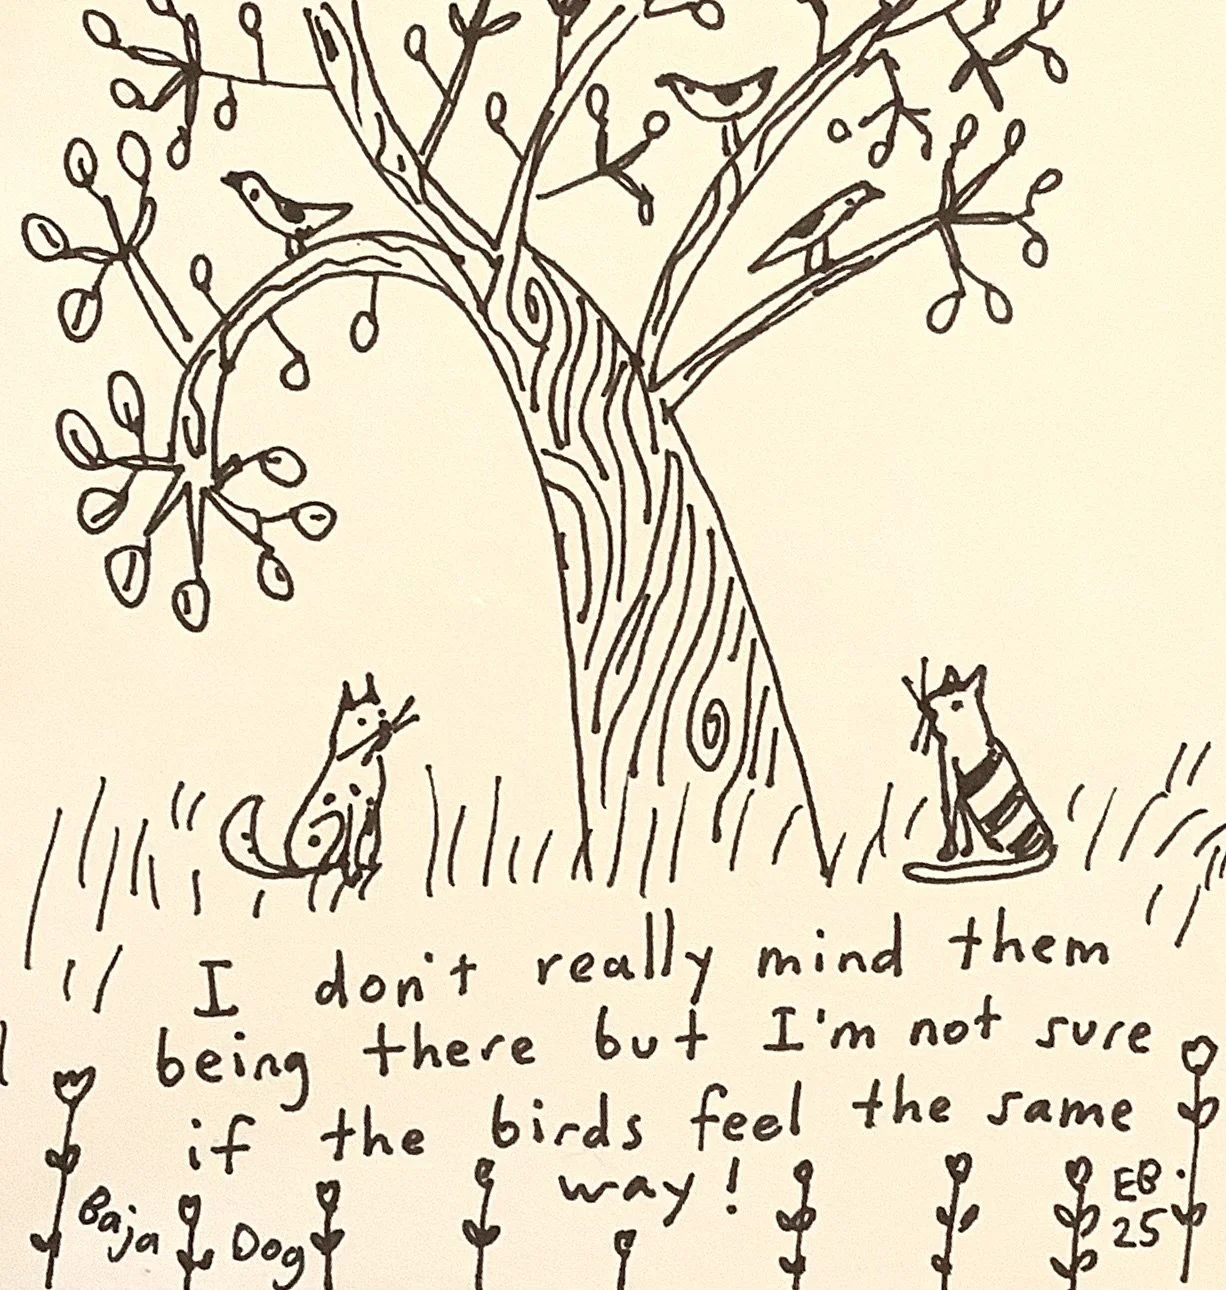 I don't really mind them
being there but I'm not sure
if the birds feel the same
way!
Baja Dog
EB.
25